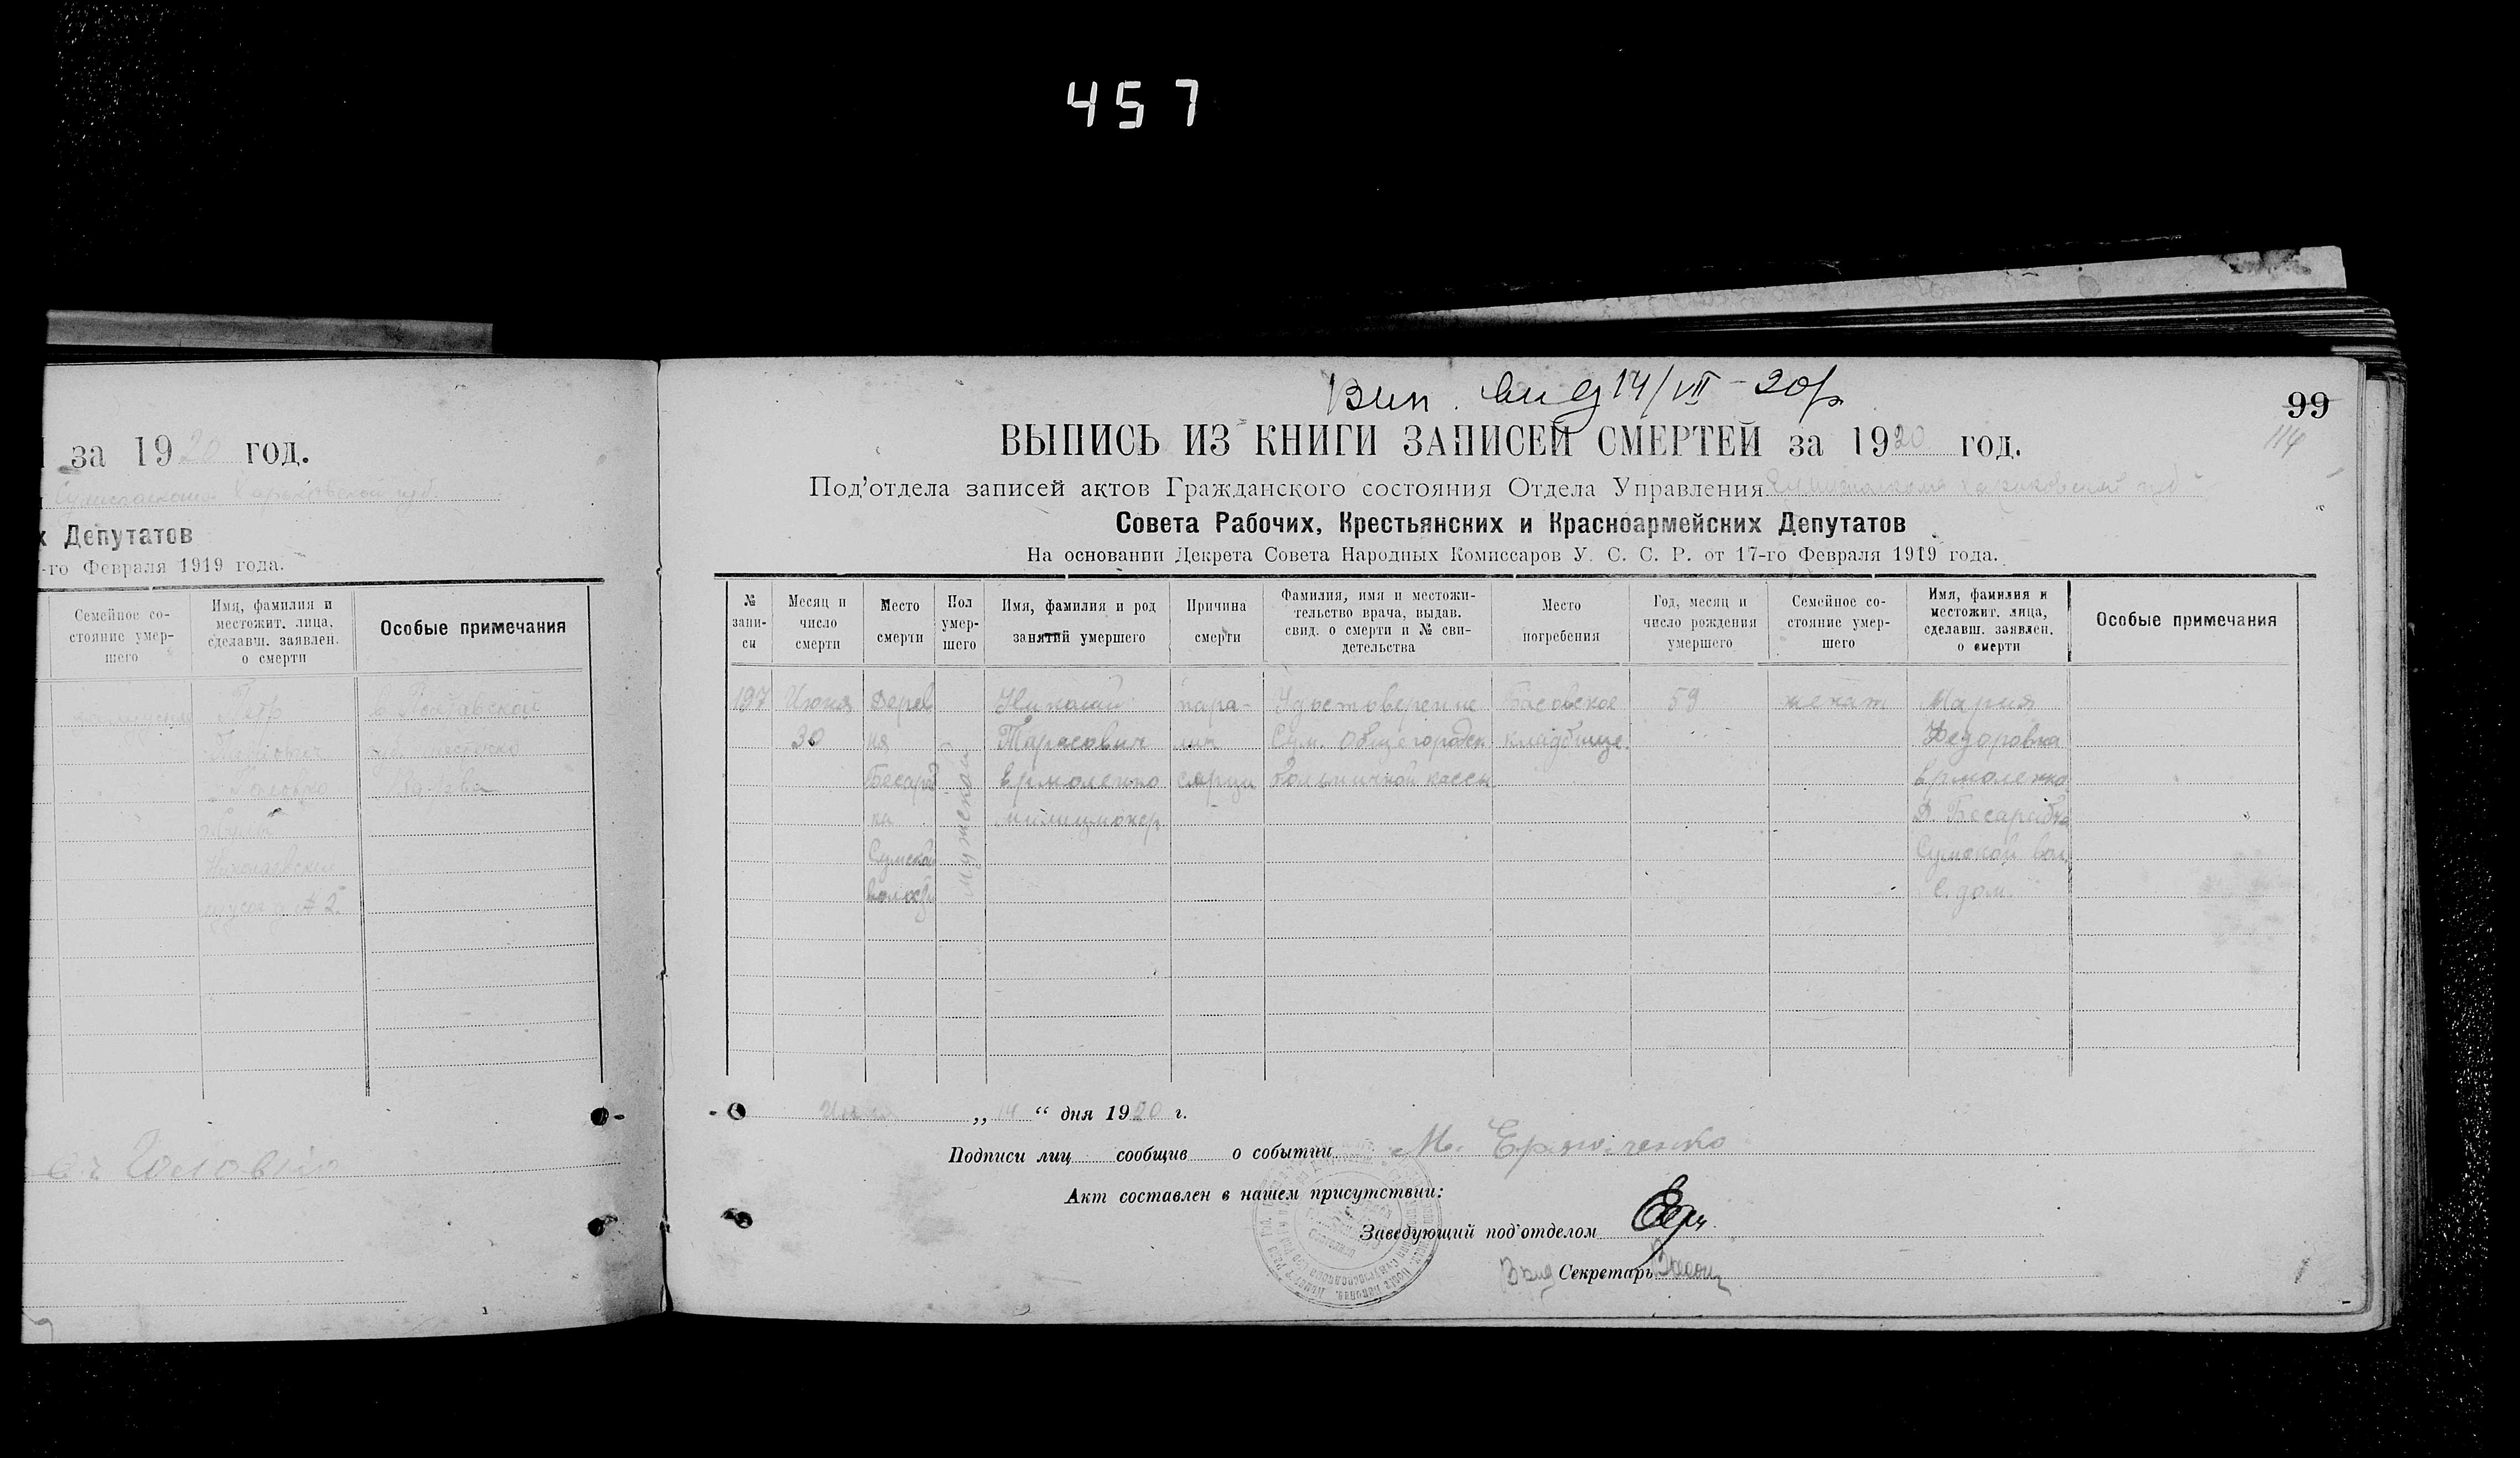 457
за 1920 год.
Харьковской губ.
х Депутатов
-го Февраля 1919 года.
Семейное со-
стояние умер-
шего
Имя, фамилия и
местожит. лица,
сделавш. заявлен.
о смерти
Особые примечания
Петр
Павлович
Головко
Николаевская
№ 2
в Полтавской
Головко
14/VII - 20 р
99
114
ВЫПИСЬ ИЗ КНИГИ ЗАПИСЕЙ СМЕРТЕЙ за 1920 год.
Под'отдела записей актов Гражданского состояния Отдела Управления Харьковской губ
Совета Рабочих, Крестьянских и Красноармейских Депутатов
На основании Декрета Совета Народных Комиссаров У. С. С. Р. от 17-го Февраля 1919 года.
№
запи-
си
Месяц и
число
смерти
Место
смерти
Пол
умер-
шего
Имя, фамилия и род
занятий умершего
Причина
смерти
Фамилия, имя и местожи-
тельство врача, выдав.
свид. о смерти и № сви-
детельства
Место
погребения
Год, месяц и
число рождения
умершего
Семейное со-
стояние умер-
шего
Имя, фамилия и
местожит. лица,
сделавш. заявлен.
о смерти
Особые примечания
197
Июня
30
Дерев
ня
Бесараб
ка
Сумской
волости
мужской
Николай
Тарасович
Ермоленко
милиционер
пара-
лич
сердца
Удостоверение
Сум. Общегородск
больничной кассы
Басовское
кладбище.
59
женат
Мария
Федоровна
Ермоленко
Д. Бесарабка
Сумской вол.
С. дом.
Июля „ 14 “ дня 1920 г.
Подписи лиц сообщив о событии М. Ермоленко
Акт составлен в нашем присутствии:
Заведующий под'отделом
Секретарь